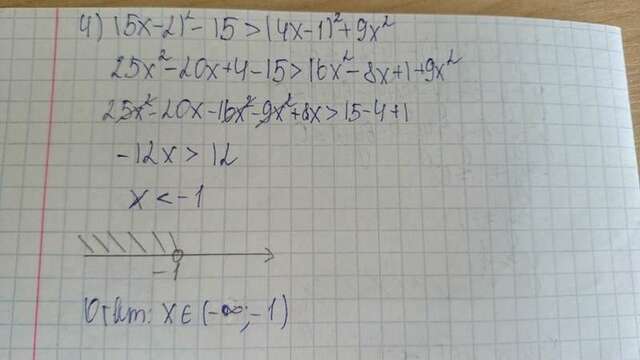 4) (5x-2)²-15>(4x-1)²+9x²
25x²-20x+4-15>16x²-8x+1+9x²
25x²-20x-16x²-9x²+8x>15-4+1
-12x>12
x<-1
-1
Ответ: x∈(-∞;-1)